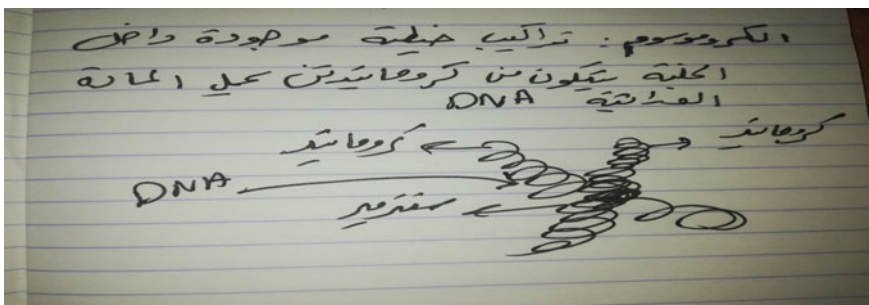 الكروموسوم: تراكيب خيطية موجودة داخل
الخلية يتكون من كروماتيدتين تحمل المادة
الوراثية DNA
كروماتيد
كروماتيد
DNA
سنترومير